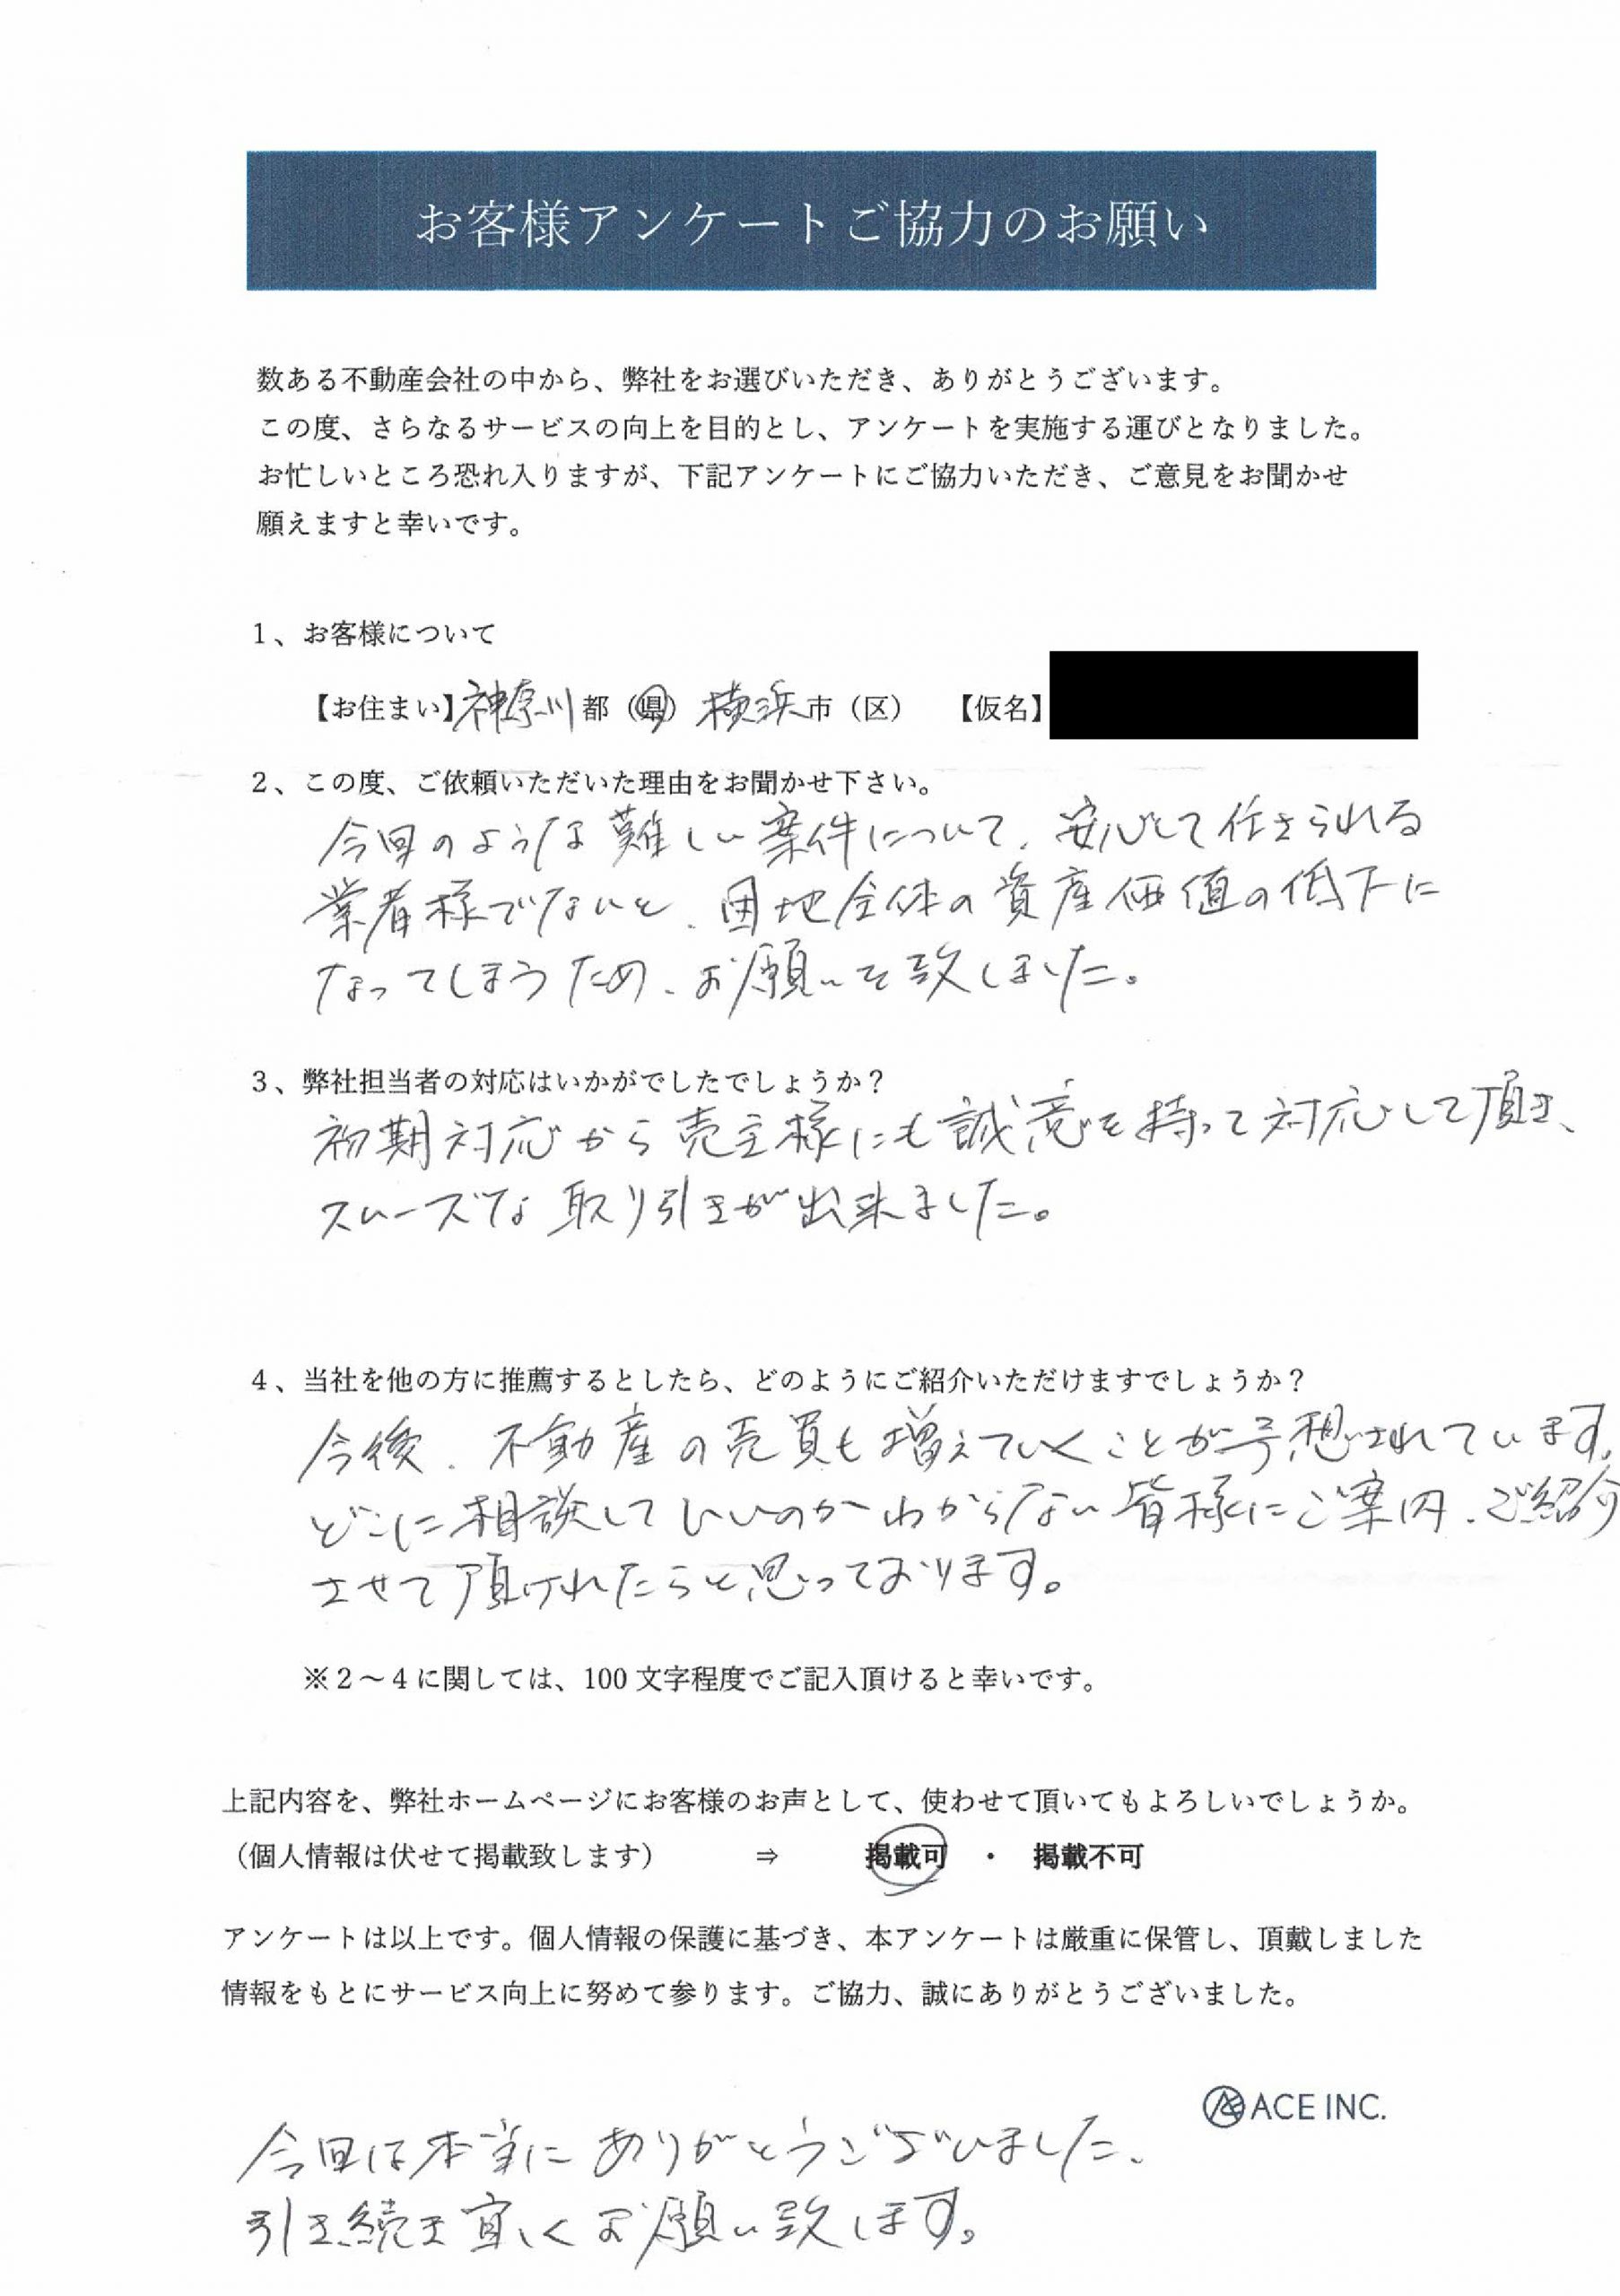 お客様アンケートご協力のお願い
数ある不動産会社の中から、弊社をお選びいただき、ありがとうございます。
この度、さらなるサービスの向上を目的とし、アンケートを実施する運びとなりました。
お忙しいところ恐れ入りますが、下記アンケートにご協力いただき、ご意見をお聞かせ
願えますと幸いです。
1、お客様について
【お住まい】神奈川都（県）横浜市（区）　【仮名】
2、この度、ご依頼いただいた理由をお聞かせ下さい。
今回のような難しい案件について、安心して任せられる
業者様でないと、団地全体の資産価値の低下に
なってしまうため、お願いを致しました。
3、弊社担当者の対応はいかがでしたでしょうか？
初期対応から売主様にも誠意を持って対応して頂き、
スムーズな取り引きが出来ました。
4、当社を他の方に推薦するとしたら、どのようにご紹介いただけますでしょうか？
今後、不動産の売買も増えていくことが予想されています。
どこに相談していいのかわからない皆様にご案内、ご紹介
させて頂けれたらと思っております。
※2～4に関しては、100文字程度でご記入頂けると幸いです。
上記内容を、弊社ホームページにお客様のお声として、使わせて頂いてもよろしいでしょうか。
（個人情報は伏せて掲載致します）　⇒　掲載可　・　掲載不可
アンケートは以上です。個人情報の保護に基づき、本アンケートは厳重に保管し、頂戴しました
情報をもとにサービス向上に努めて参ります。ご協力、誠にありがとうございました。
ACE INC.
今回は本当にありがとうございました、
引き続き宜しくお願い致します。